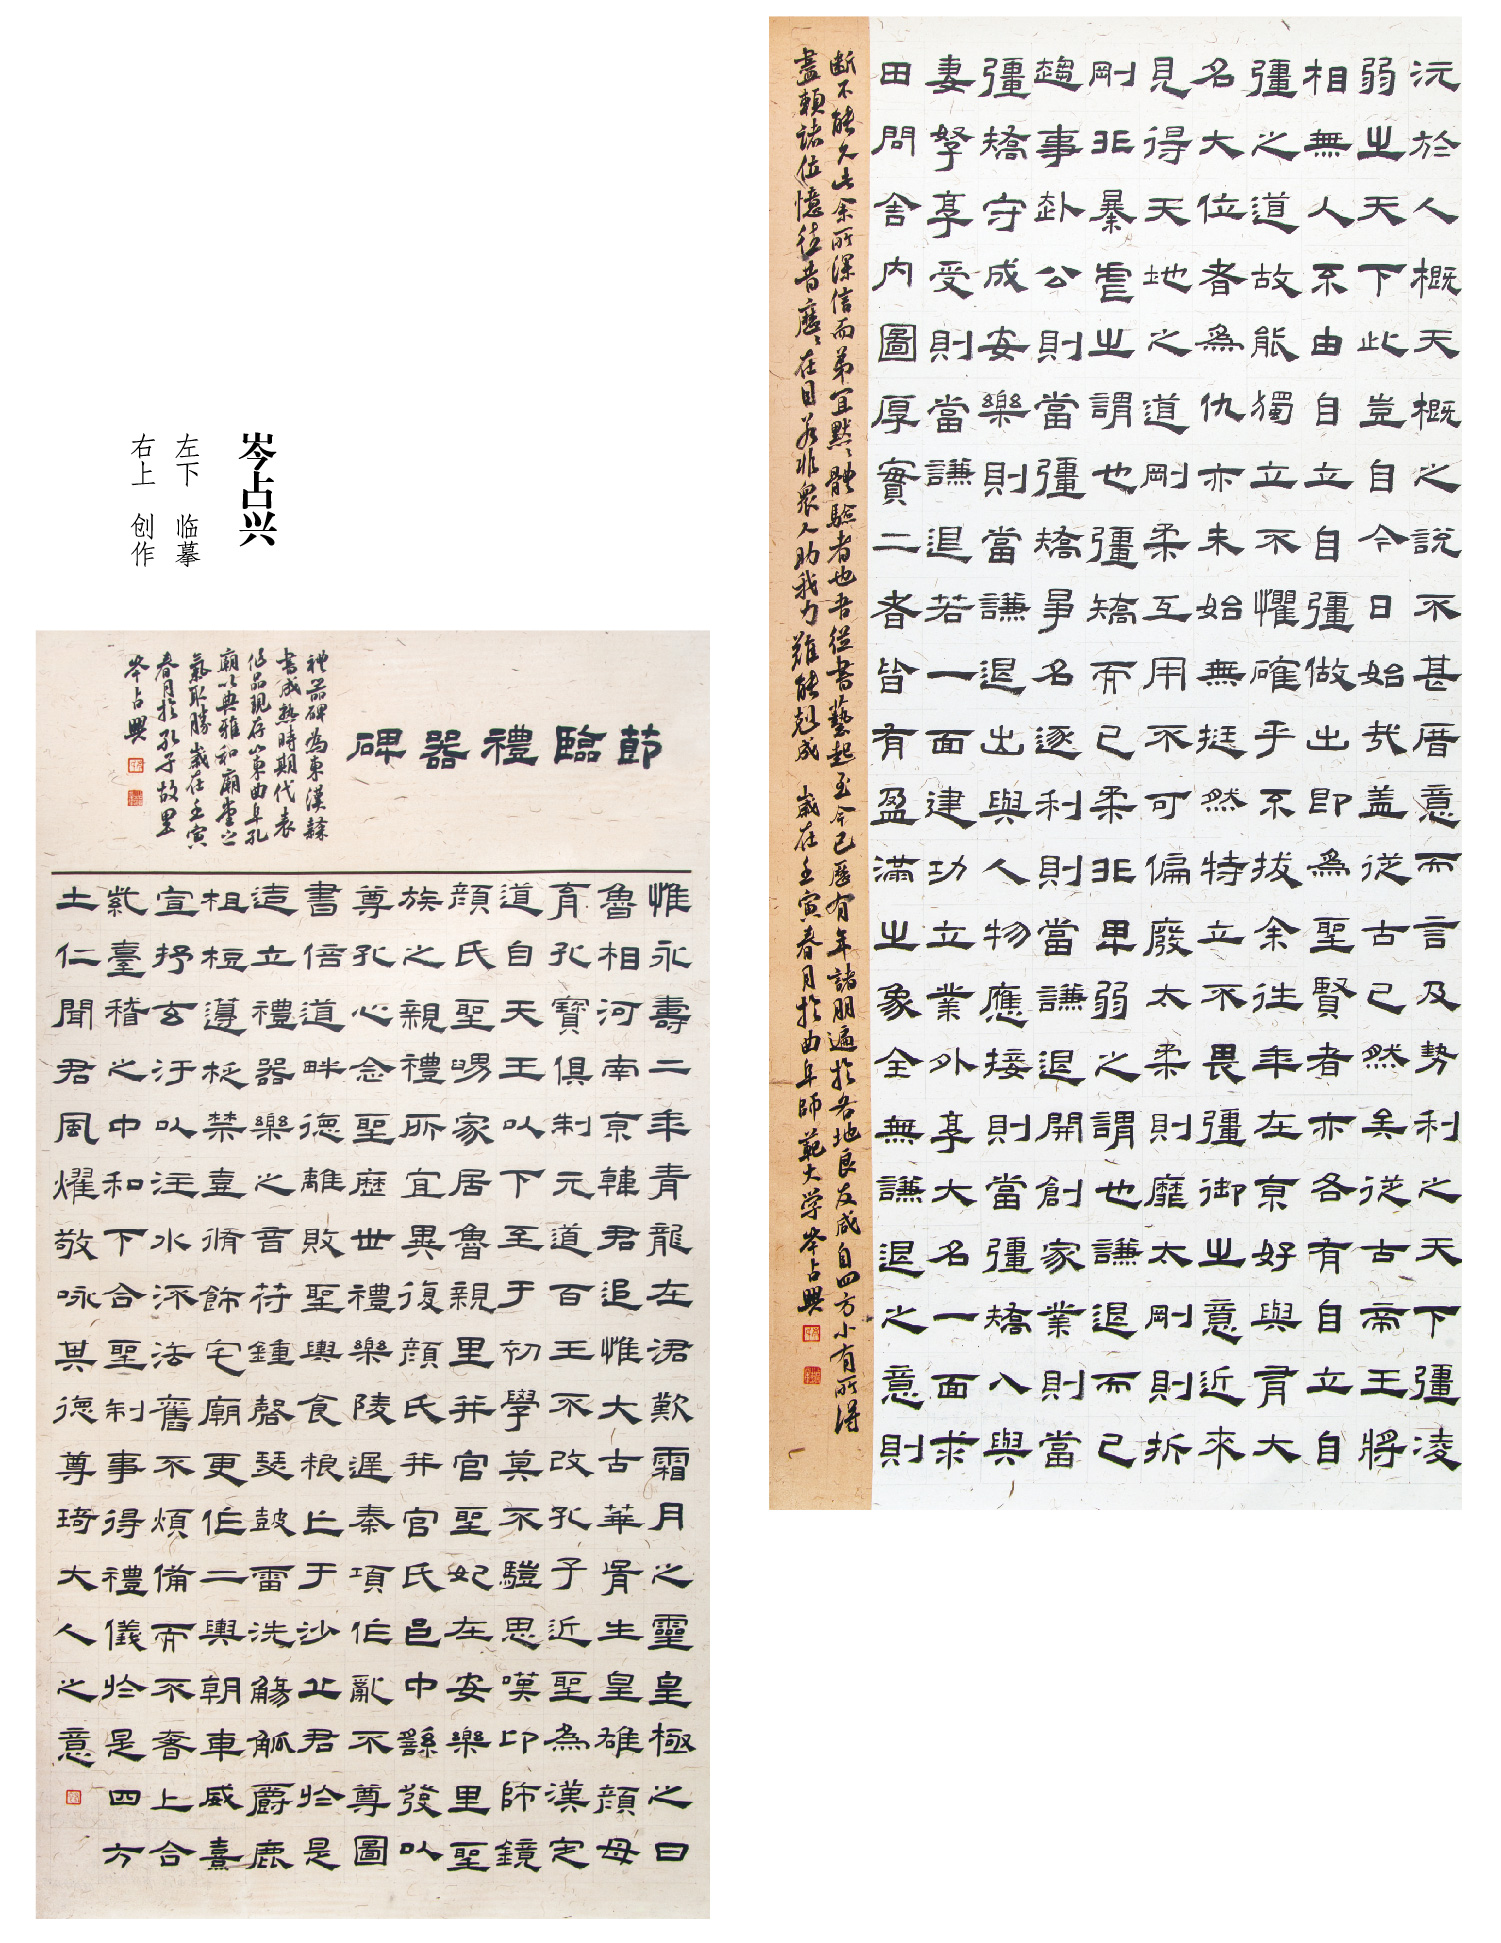 沅於人概天概之說不甚厝意而言及勢利之天下彊凌
弱之天下此豈自今日始哉蓋從古已然矣從古帝王將
相無人不由自立自彊做出即為聖賢者亦各有自立自
彊之道故能獨立不懼確乎不拔余往年在京好與有大
名大位者為仇亦未始無挺然特立不畏彊御之意近來
見得天地之道剛柔互用不可偏廢太柔則靡太剛則折
剛非暴虐之謂也彊矯而已柔非卑弱之謂也謙退而已
趨事赴公則當彊矯爭名逐利則當謙退開創家業則當
彊矯守成安樂則當謙退出與人物應接則當彊矯入與
妻孥享受則當謙退若一面建功立業外享大名一面求
田問舍內圖厚實二者皆有盈滿之象全無謙退之意則
斷不能久此余所深信而弟宜默默體驗者也吾從書藝起至今已歷有年諸朋遍於各地良友咸自四方小有所得
盡賴諸位憶往昔歷歷在目若非眾人助我力難能剋成 歲在壬寅春月於曲阜師範大学岑占興
岑占兴
左下 临摹
右上 创作
節臨禮器碑
禮器碑為東漢隸
書成熟時期代表
作品現存山東曲阜孔
廟以典雅和廟堂之
氣取勝歲在壬寅
春月於孔子故里
岑占興
惟永壽二年青龍在涒歎霜月之靈皇極之日
魯相河南京韓君追惟大古華胥生皇雄顏母
育孔寶俱制元道百王不改孔子近聖為漢定
道自天王以下至于初學莫不驥思嘆卬師鏡
顏氏聖舅家居魯親里并官聖妃在安樂里聖
族之親禮所宜異復顏氏并官氏邑中繇發以
尊孔心念聖歷世禮樂陵遲秦項作亂不尊圖
書倍道畔德離敗聖輿食粮亡于沙丘君於是
造立禮器樂之音苻鍾磬瑟鼓雷洗觴觚爵鹿
柤梪籩柉禁壺脩飾宅廟更作二輿朝車威熹
宣抒玄汙以注水流法舊不煩備而不奢上合
紫臺稽之中和下合聖制事得禮儀於是四方
土仁聞君風燿敬咏其德尊琦大人之意